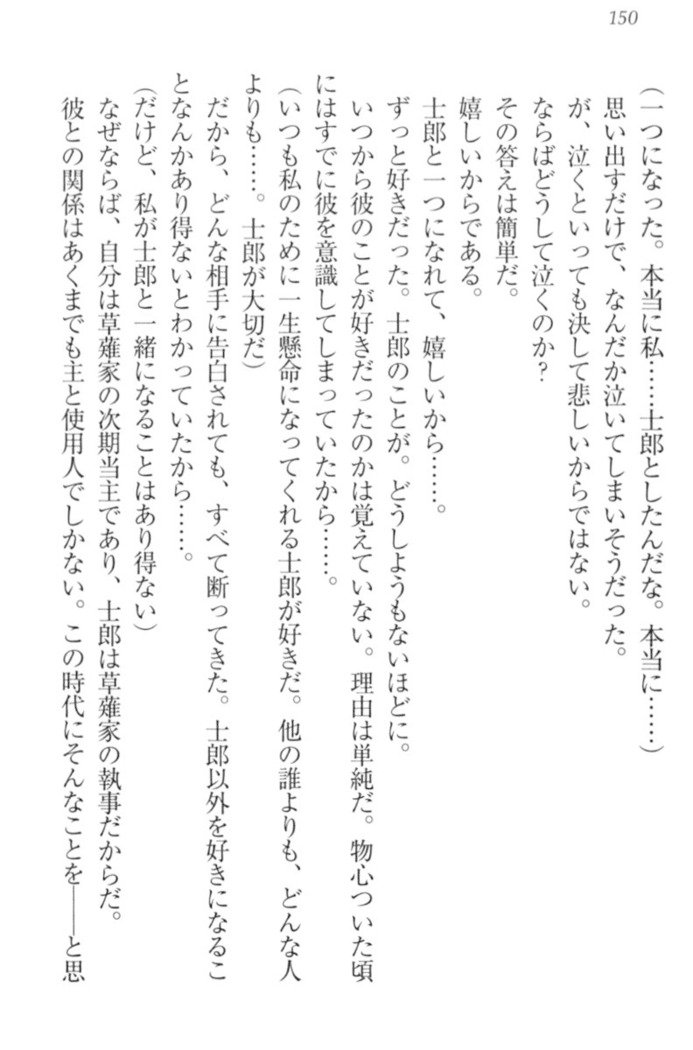 150
(一つになった。本当に私……士郎としたんだな。本当に……)
思い出すだけで、なんだか泣いてしまいそうだった。
が、泣くといっても決して悲しいからではない。
ならばどうして泣くのか?
その答えは簡単だ。
嬉しいからである。
士郎と一つになれて、嬉しいから……。
ずっと好きだった。士郎のことが。どうしようもないほどに。
いつから彼のことが好きだったのかは覚えていない。理由は単純だ。物心ついた頃
にはすでに彼を意識してしまっていたから……。
(いつも私のために一生懸命になってくれる士郎が好きだ。他の誰よりも、どんな人
よりも……。士郎が大切だ)
だから、どんな相手に告白されても、すべて断ってきた。士郎以外を好きになるこ
となんかあり得ないとわかっていたから……。
(だけど、私が士郎と一緒になることはあり得ない)
なぜならば、自分は草薙家の次期当主であり、士郎は草薙家の執事だからだ。
彼との関係はあくまでも主と使用人でしかない。この時代にそんなことを――と思